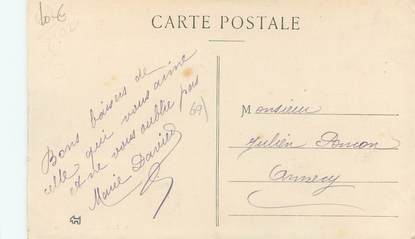 10€
CARTE POSTALE
Bons baisers de
celle qui vous aime
et ne vous oublie pas
Marie
(69)
Monsieur
Julien
Annecy